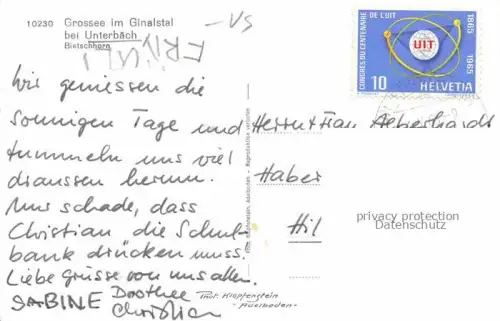 10230 Grossee im Ginalstal
bei Unterbäch
Bietschhorn
-VS
CONGRÈS DU CENTENAIRE DE L'UIT
1865 1965
UIT
10 HELVETIA
Wir geniessen die
sonnigen Tage und
tummeln uns viel
draussen herum.
Nur schade, dass
Christian die Schul-
bank drücken muss.
Liebe Grüsse von uns allen.
SABINE Dorothee
Christian
Herrn + Frau Aeberhardt
Haber
Hil
privacy protection
Datenschutz
Phot. Klopfenstein
Adelboden